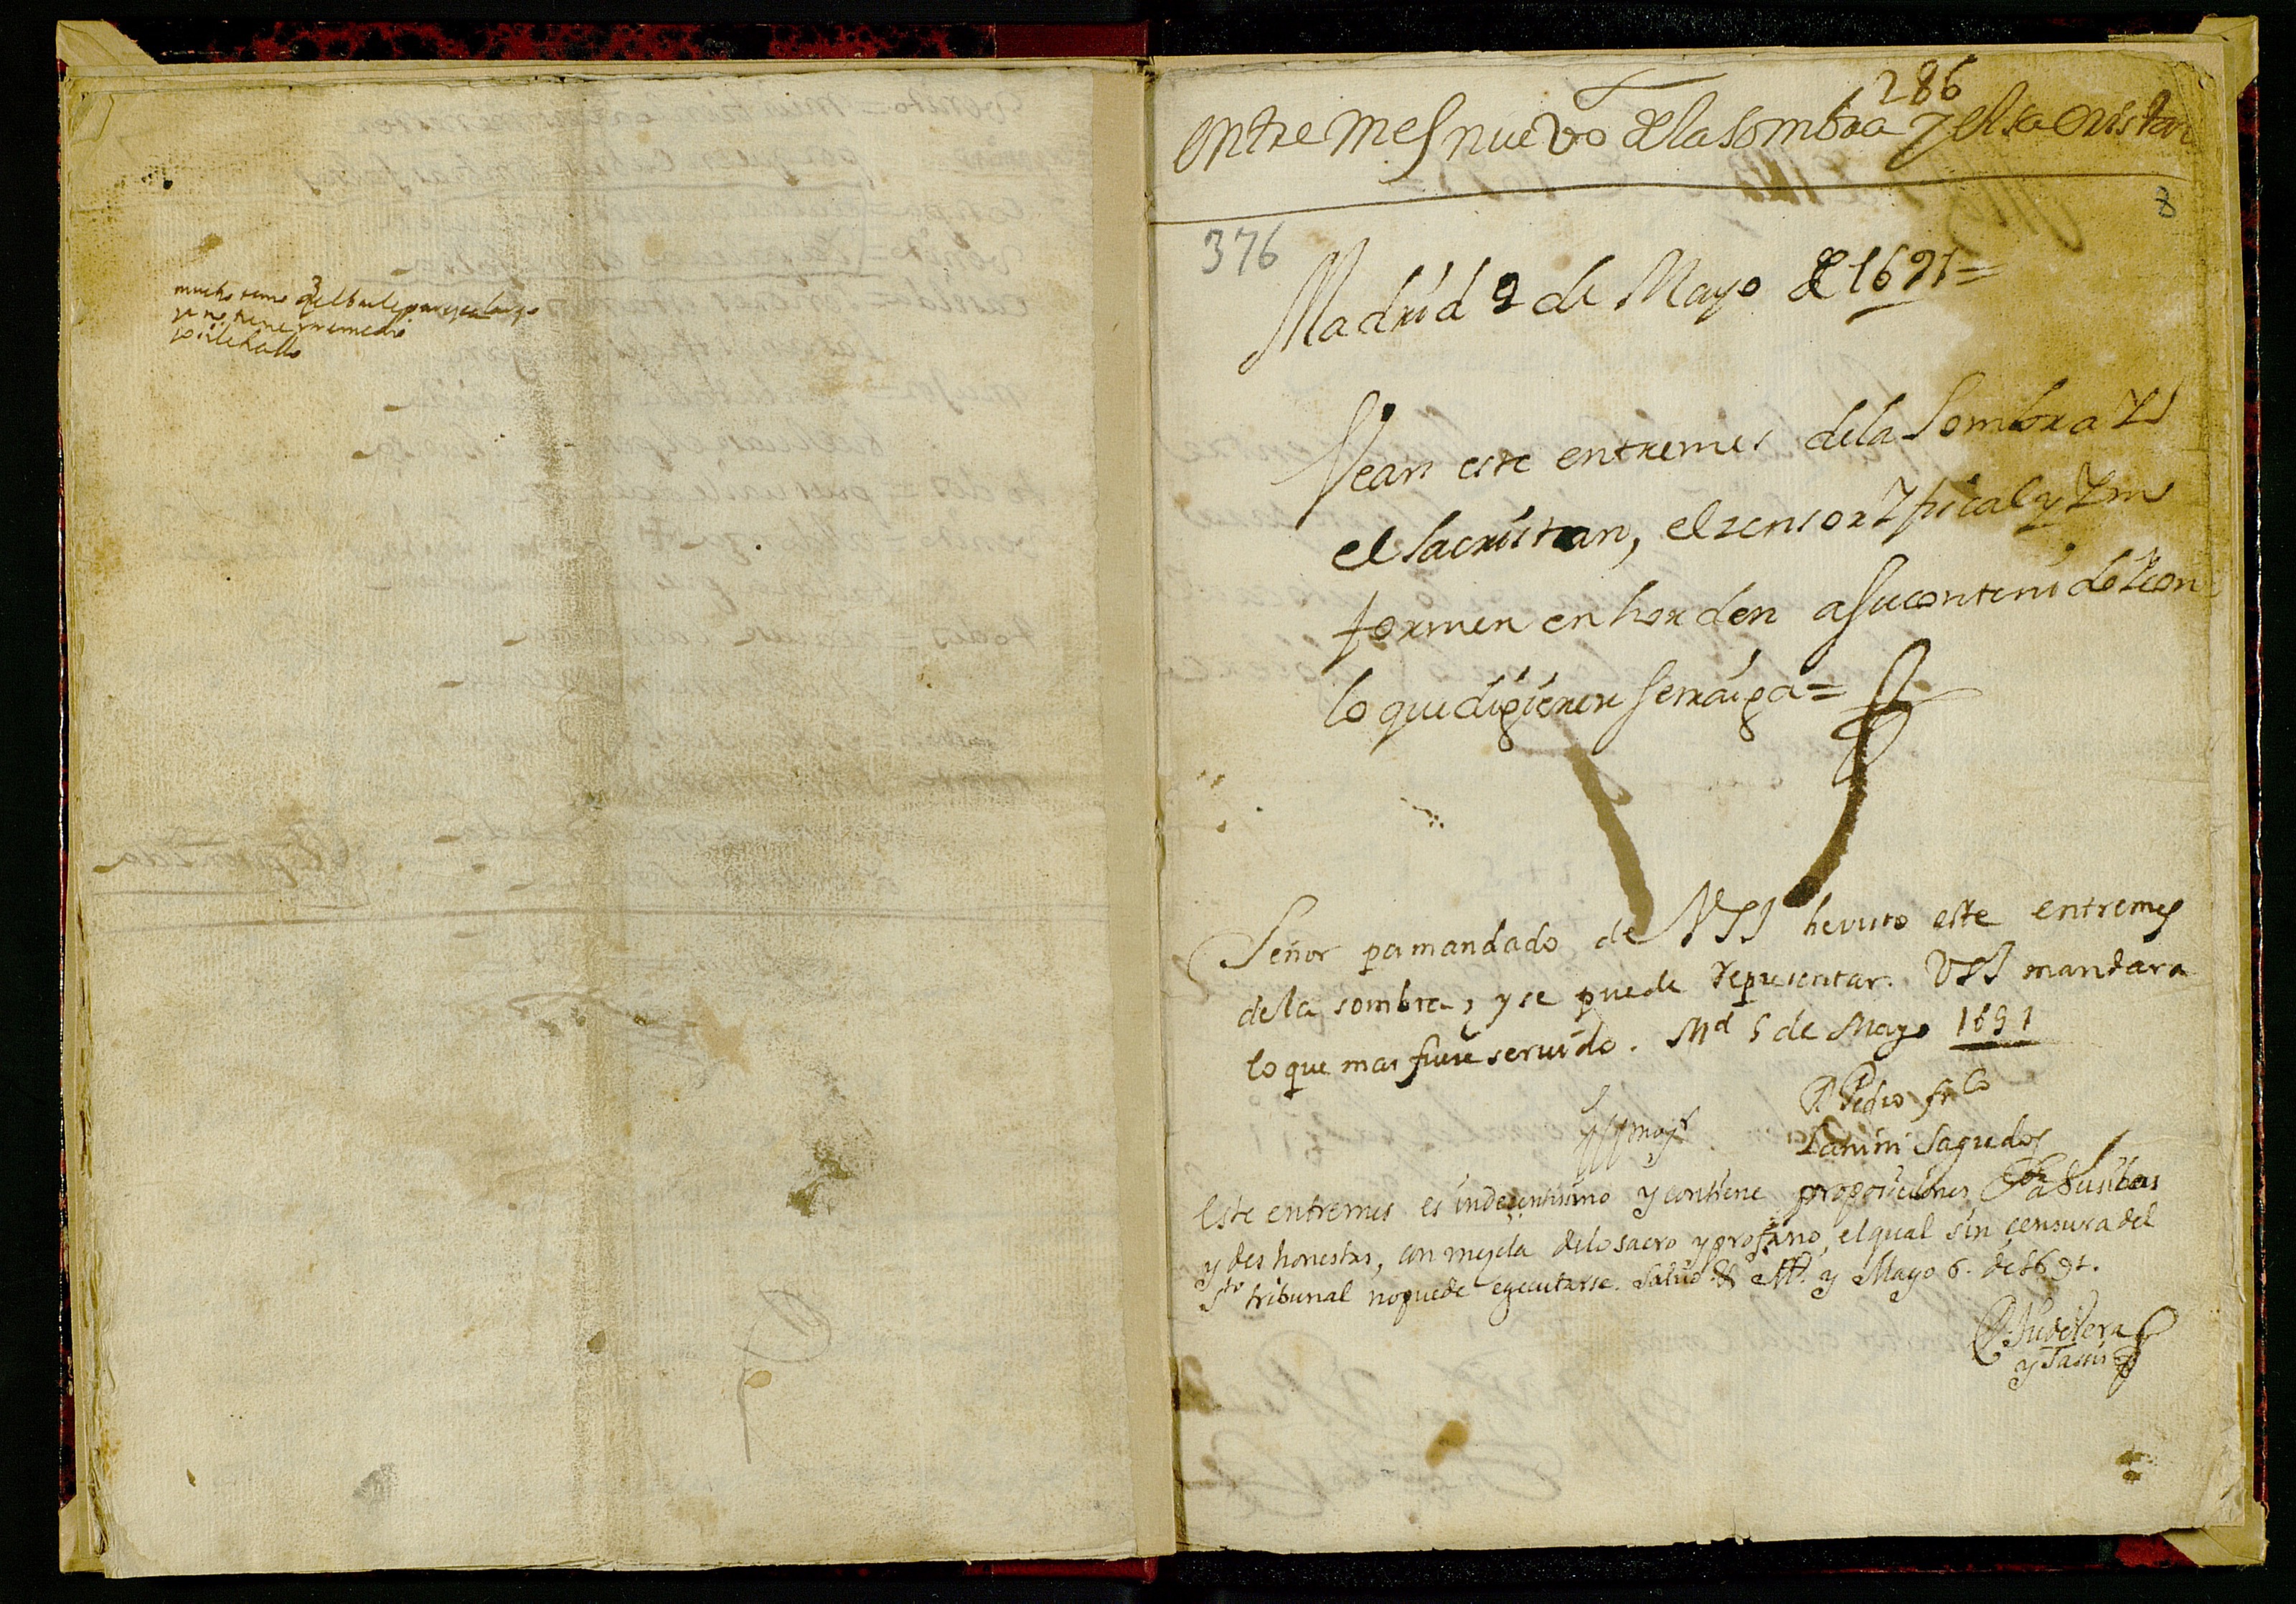 mucho temo q el baile parezca largo
ya no tiene remedio
286
entremes nuebo de la sombra y el sacristan
8
376
Madrid 2 de Mayo de 1691=
Vean este entremes de la Sombra y
el Sacristan, el zensor y fiscal y ynformen
en horden a su contenido y con
lo que digieren se traiga=
Señor por mandado de VSI he visto este entremes
de la sombra, y se puede representar. VSI mandara
lo que mas fuere servido. Md 5 de Mayo 1691
D. Pedro frco
Lanini Sagredo
Este entremes es indecentisimo y contiene proposiciones
y deshonestas, con mezcla de lo sacro y profano, el qual sin censura del
Sto tribunal no puede egecutarse. Salvo &. Md. y Mayo 6. de 1691.